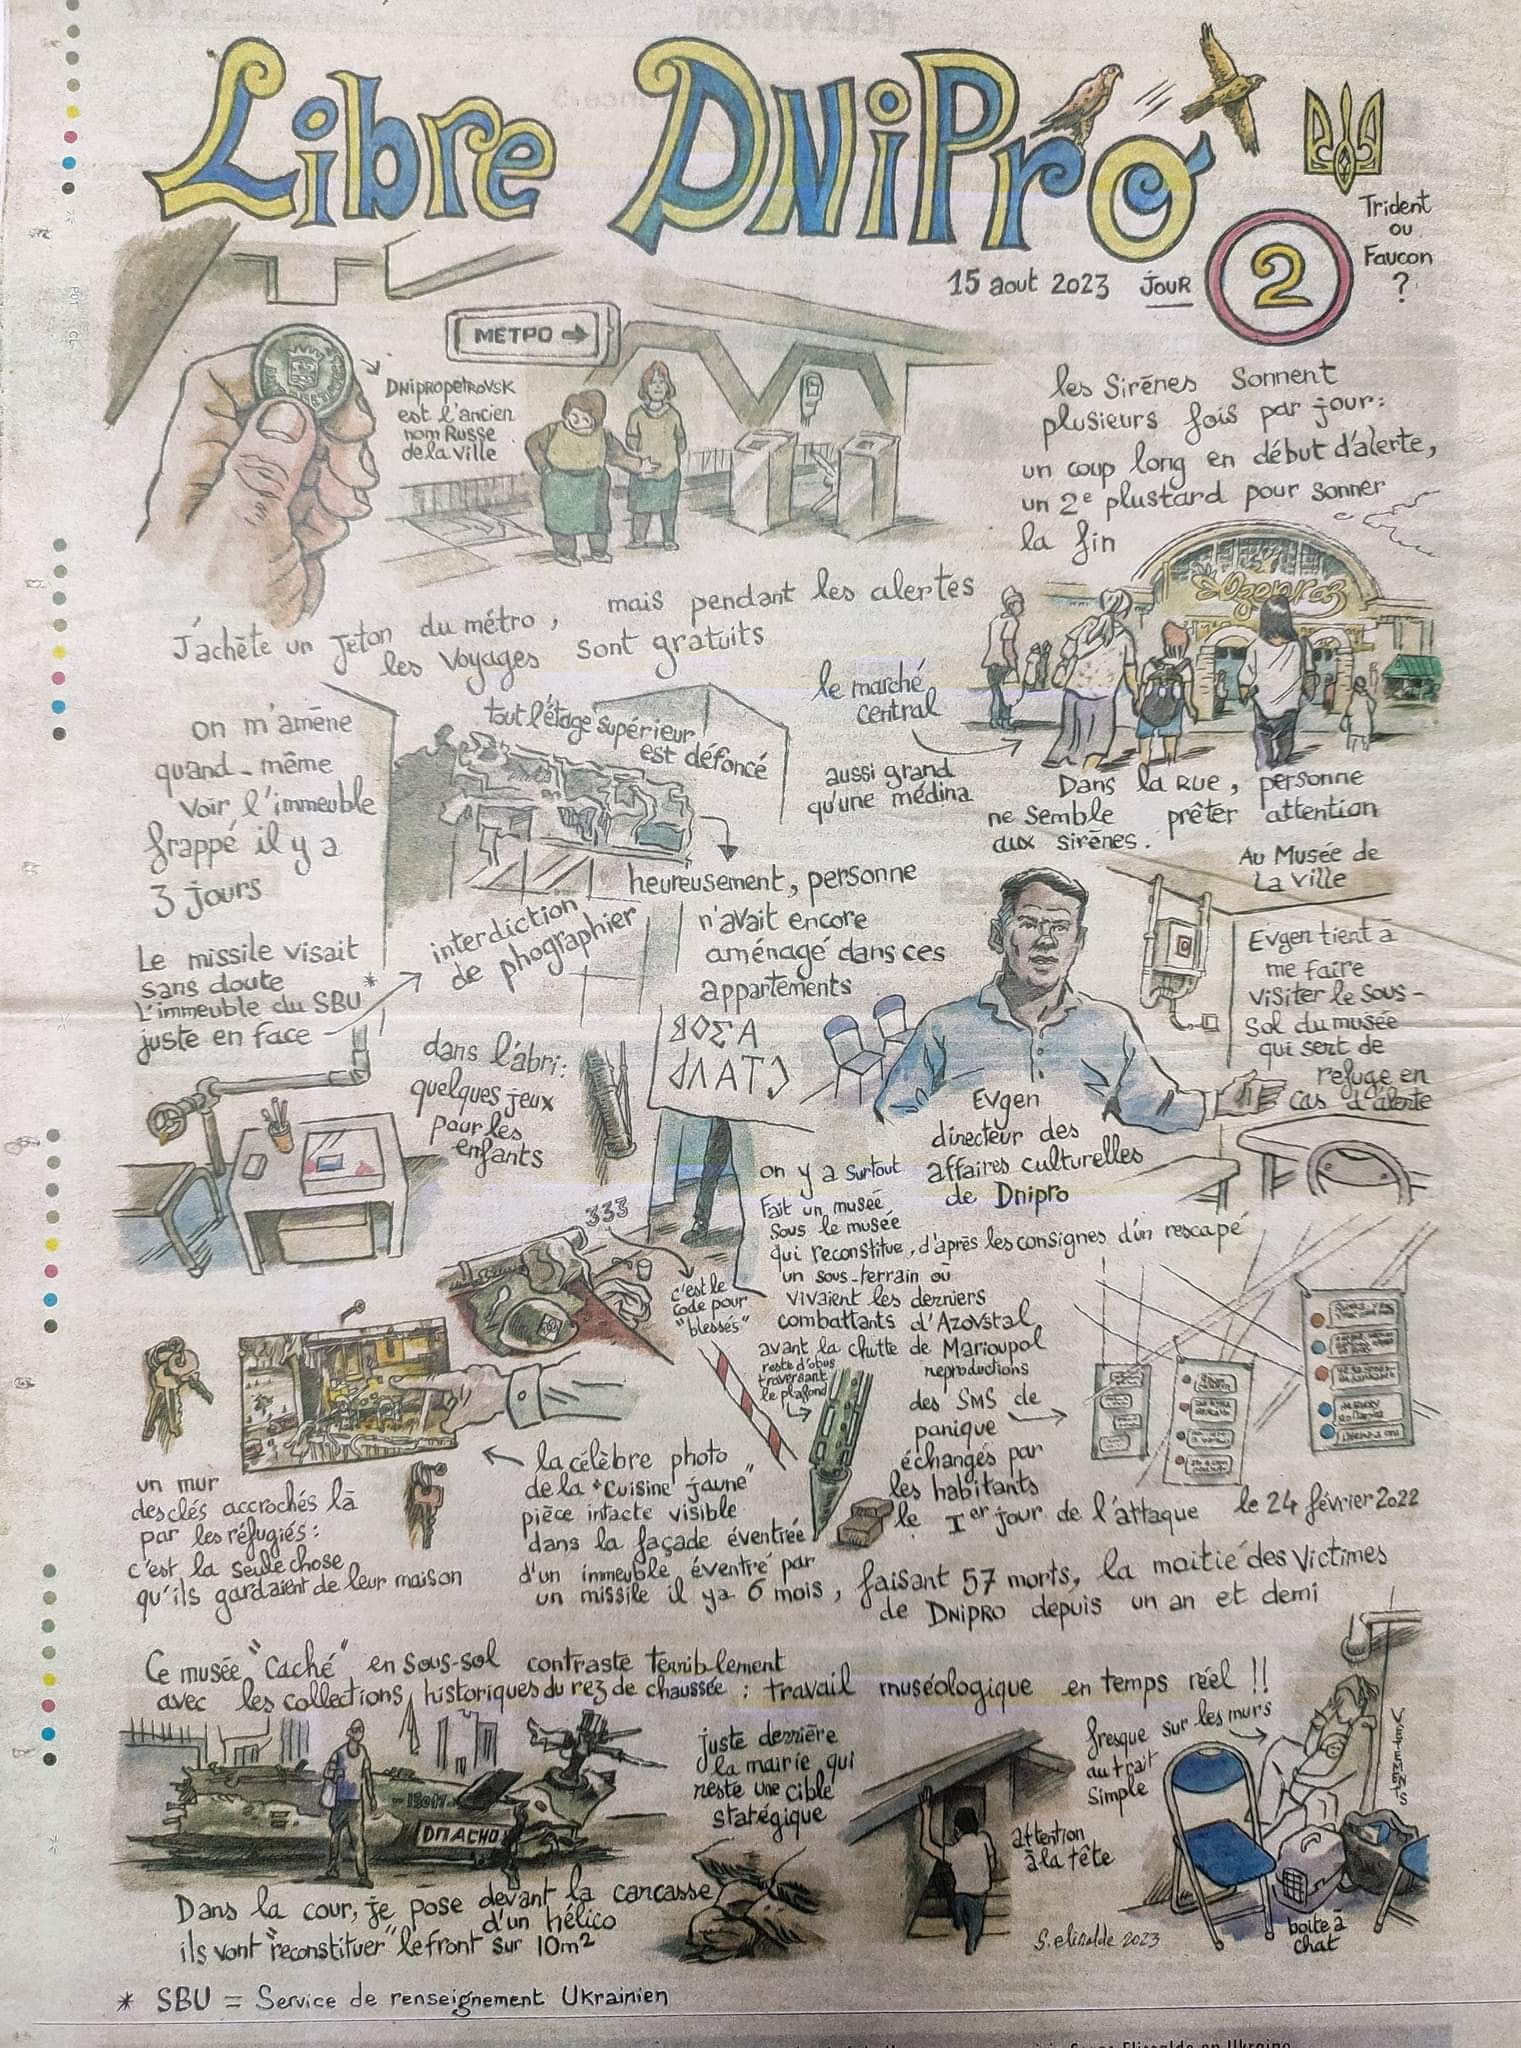 Libre DNiPro
Trident
ou
Faucon
?
15 aout 2023 JOUR 2
METPO →
DNipropetrovsk
est l'ancien
nom Russe
de la ville
les Sirēnes Sonnent
plusieurs fois par jour:
un coup long en début d'alerte,
un 2e plustard pour sonner
la fin
J'achète un Jeton du métro,
mais pendant les alertes
les Voyages sont gratuits
le marché
central
aussi grand
qu'une médina
Dans la Rue, personne
ne semble prêter attention
aux sirēnes.
on m'amēne
quand-même
voir l'immeuble
frappé il y a
3 jours
tout l'étage supérieur
est défoncé
heureusement, personne
n'avait encore
aménagé dans ces
appartements
Le missile visait
sans doute
L'immeuble du SBU*
juste en face
interdiction
de phographier
Au Musée de
La Ville
Evgen tient à
me faire
visiter le sous-
sol du musée
qui sert de
refuge en
cas d'alerte
Evgen
directeur des
affaires culturelles
de Dnipro
dans l'abri:
quelques jeux
pour les
enfants
333
c'est le
code pour
"blessés"
on y a surtout
Fait un musée
Sous le musée
qui reconstitue, d'après les consignes d'un rescapé
un sous-terrain où
vivaient les derniers
combattants d'Azovstal
avant la chutte de Marioupol
reste d'obus
traversant
le plafond
reproductions
des SMS de
panique
échangés par
les habitants
le 1er jour de l'attaque le 24 février 2022
un mur
des clés accrochés là
par les réfugiés:
c'est la seule chose
qu'ils gardaient de leur maison
la célèbre photo
de la "Cuisine jaune"
pièce intacte visible
dans la façade éventrée
d'un immeuble éventré par
un missile il ya 6 mois, faisant 57 morts, la moitié des victimes
de DNIPRO depuis un an et demi
Ce musée "caché" en sous-sol contraste terriblement
avec les collections historiques du rez de chaussée: travail muséologique en temps réel !!
juste derrière
la mairie qui
reste une cible
statégique
fresque sur les murs
au trait
simple
attention
à la tête
VETEMENTS
boite à
chat
ОПАСНО
Dans la cour, je pose devant la carcasse
d'un hélico
ils vont "reconstituer" le front sur 10m2
S. elissalde 2023
* SBU = Service de renseignement Ukrainien